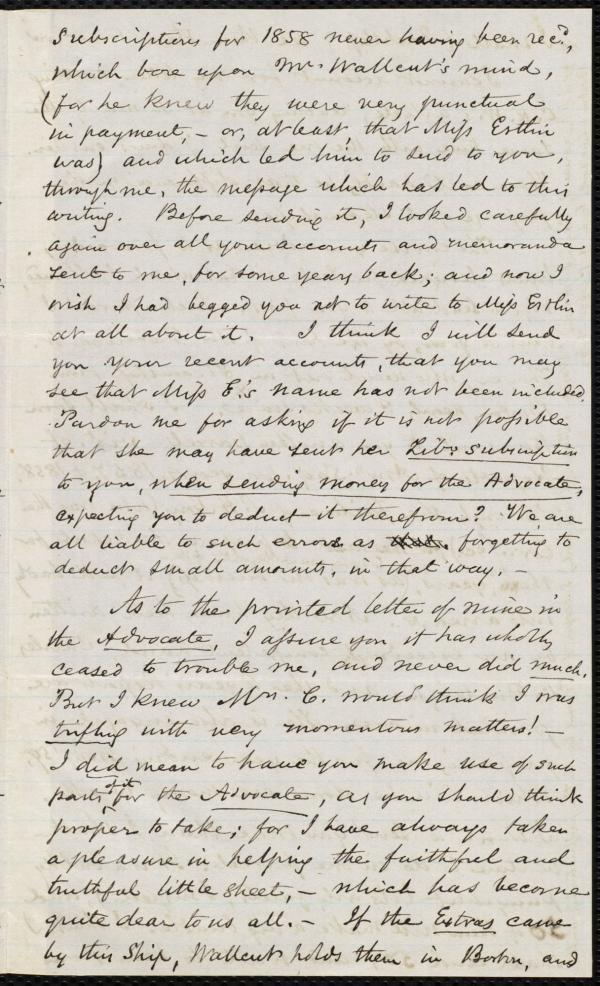 Subscriptions for 1858 never having been rec'd,
which bore upon Mr. Wallcut's mind,
(for he knew they were very punctual
in payment, – or, at least, that Miss Estlin
was) and which led him to send to you,
through me, the message which has led to this
writing. Before sending it, I looked carefully
again over all your accounts and memoranda
sent to me, for some years back; and now I
wish I had begged you not to write to Miss Estlin
at all about it. I think I will send
you your recent accounts, that you may
see that Miss E.'s name has not been included.
Pardon me for asking if it is not possible
that she may have sent her Libr subscription
to you, when sending money for the Advocate,
expecting you to deduct it therefrom? We are
all liable to such errors as forgetting to
deduct small amounts, in that way. –
As to the printed letter of mine in
the Advocate, I assure you it has wholly
ceased to trouble me, and never did much.
But I knew Mrs. C. would think I was
trifling with very momentous matters! –
I did mean to have you make use of such
parts of it for the Advocate, as you should think
proper to take; for I have always taken
a pleasure in helping the faithful and
truthful little sheet, – which has become
quite dear to us all. – If the Extras came
by this Ship, Wallcut holds them in Boston, and